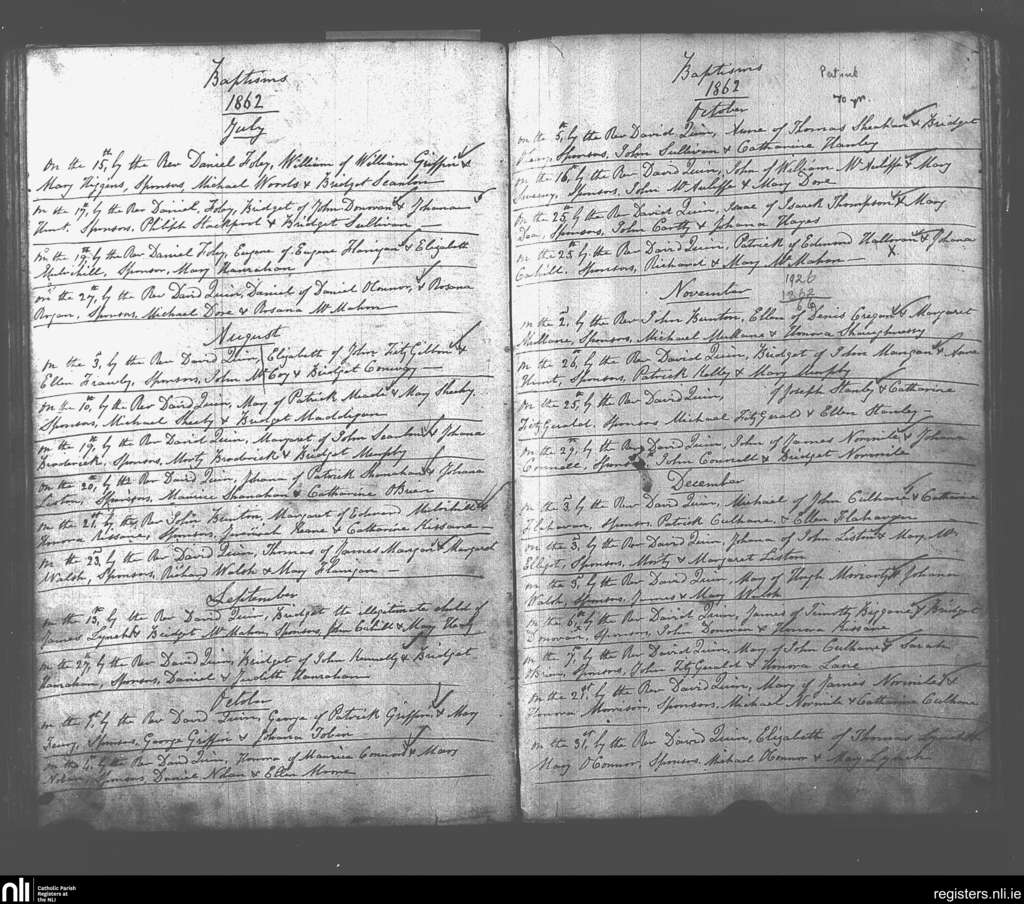 Baptisms
1862
July
On the 15th, by the Rev Daniel Foley, William of William Griffin &
Mary Higgins, Sponsors, Michael Woods & Bridget Scanlon
On the 17th, by the Rev Daniel Foley, Bridget of John Donovan & Johanna
Hunt, Sponsors, Philip Hackpool & Bridget Sullivan
On the 19th, by the Rev Daniel Foley, Eugene of Eugene Flanigan & Elizabeth
Mulvihill, Sponsor, Mary Hanrahan
On the 27, by the Rev David Quin, Daniel of Daniel OConnor, & Rosana
Sponsors, Michael Dore & Rosana McMahon
August
On the 3, by the Rev David Quin, Elizabeth of John FitzGibbon &
Ellen Frawly, Sponsors, John McCoy & Bridget Conway
On the 10, by the Rev David Quin, Mary of Patrick Meade & Mary Sheehy,
Sponsors, Michael Sheehy & Bridget Maddigan
On the 17, by the Rev David Quin, Margaret of John Scanlon & Johana
Broderick, Sponsors, Morty Broderick & Bridget Murphy
On the 20, by the Rev David Quin, Johana of Patrick Shanahan & Johana
Liston, Sponsors, Maurice Shanahan & Catharine OBrien
On the 21, by the Rev John Bunton, Margaret of Edward Mulvihill &
Honora Kissane, Sponsors, Jeremiah Keane & Catharine Kissane
On the 23, by the Rev David Quin, Thomas of James Mangan & Margaret
Walsh, Sponsors, Richard Walsh & Mary Flanigan
September
On the 13, by the Rev David Quin, Bridget the illegitimate child of
James Lynch & Bridget McMahon, Sponsors, John Cahill & Mary
On the 27, by the Rev David Quin, Bridget of John Kennelly & Bridget
Hanrahan, Sponsors, Daniel & Judith Hanrahan
October
On the 1st, by the Rev David Quin, George of Patrick Griffin, & Mary
Sponsors, George Griffin & Johana Tobin
On the 4, by the Rev David Quin, Honora of Maurice Connors & Mary
Nolan, Sponsors, Daniel Nolan & Ellen Moore
Baptisms
1862
October
Patrick
70 yr.
On the 5, by the Rev David Quin, Anne of Thomas Sheahan & Bridget
Sponsors, John Sullivan & Catharine Hanley
On the 16, by the Rev David Quin, John of William McAuliffe & Mary
Sponsors, John McAuliffe & Mary Dore
On the 25th by the Rev David Quin, Isaac of Isaack Thompson & Mary
Dea, Sponsors, John Carthy & Johana Hayes
On the 25 by the Rev David Quin, Patrick of Edmund Halloran & Johana
Cahill, Sponsors, Richard & Mary McMahon
X
November
1926
1862
On the 2, by the Rev John Bunton, Ellen of Denis Cregan & Margaret
Nulkane, Sponsors, Michael Mulkane & Honora Shaughnessy
On the 26, by the Rev David Quin, Bridget of John Mangan & Anne
Hunt, Sponsors, Patrick Kelly & Mary Murphy
On the 25, by the Rev David Quin, of Joseph Hanly & Catharine
FitzGerald, Sponsors Michael FitzGerald & Ellen Hanley
On the 29, by the Rev David Quin, John of James Normile & Johana
Connell, Sponsors John Connell & Bridget Normile
December
On the 3, by the Rev David Quin, Michael of John Culhane & Catharine
Flahavan, Sponsors Patrick Culhane, & Ellen Flahavan
On the 3, by the Rev David Quin, Johana of John Liston & Mary Mc
Elligot, Sponsors, Morty & Margaret Liston
On the 5, by the Rev David Quin, Mary of Hugh Moriarty & Johana
Walsh, Sponsors, James & Mary Walsh
On the 6th, by the Rev David Quin, James of Timothy Byggane & Bridget
Donovan, Sponsors, John Donovan & Honora Kissane
On the 7, by the Rev David Quin, Mary of John Culhane & Sarah
OBrien, Sponsors, John FitzGerald & Honora Lane
On the 21st by the Rev David Quin, Mary of James Normile &
Honora Morrison, Sponsors, Michael Normile & Catharine Culhane
On the 31, by the Rev David Quin, Elizabeth of Thomas Lynch &
Mary OConnor, Sponsors, Michael OConnor & Mary Lynch
nli
Catholic Parish
Registers at
the NLI
registers.nli.ie